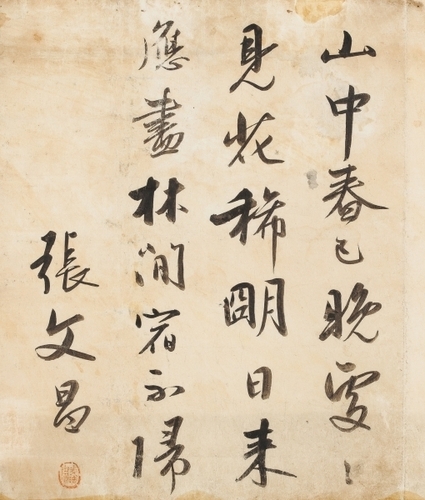 山中春已晚處〻
見花稀朙日来
應盡林間宿不歸
張文昌